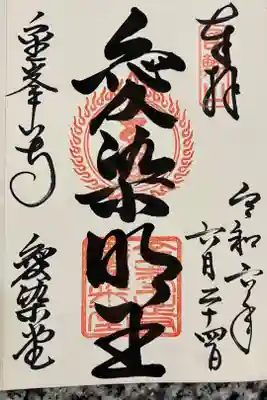 奉拝
令和六年
六月二十四日
愛染明王
愛染堂